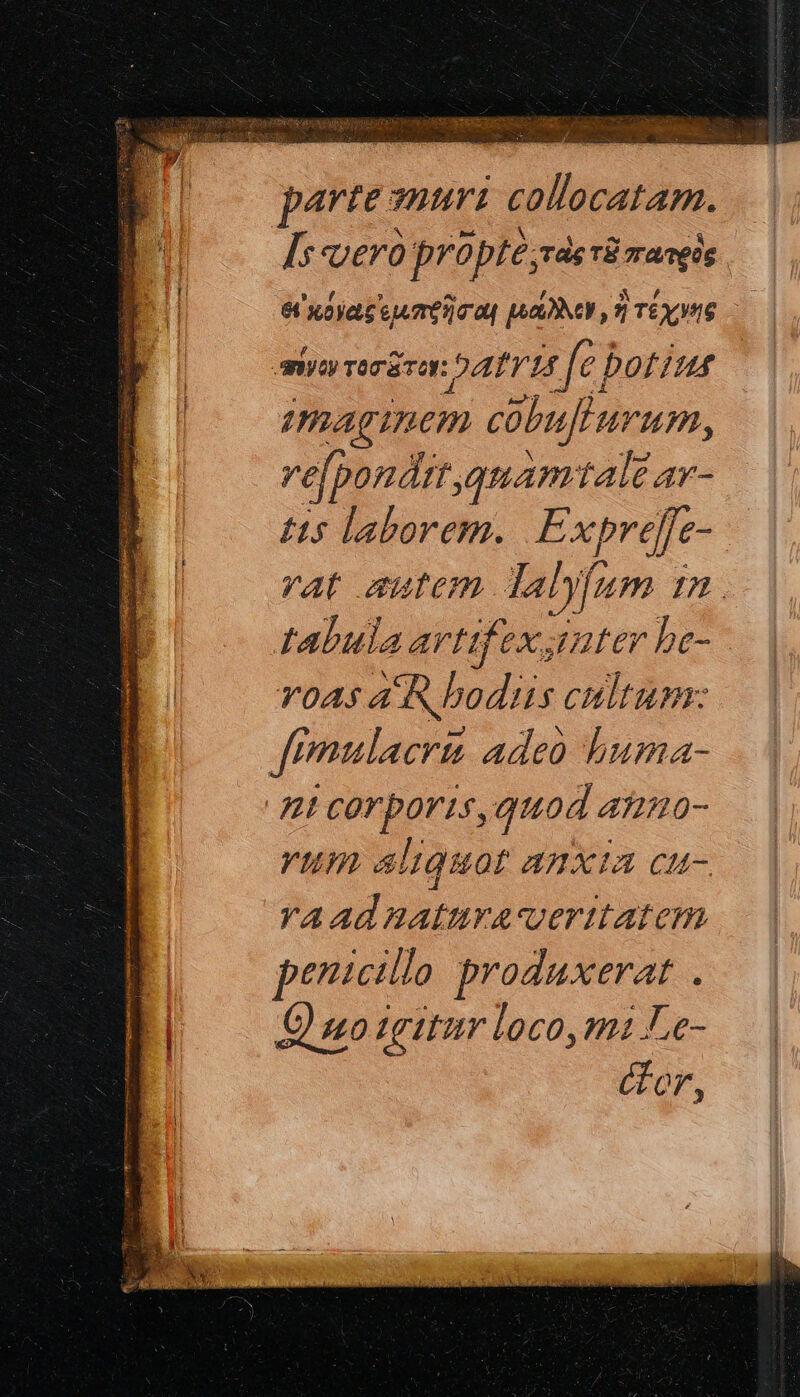 parte muri collocatam.
Is verò prõptè, τὰς τȣ͂ πατρὸς
εἰκόνας ἐμπρῆσαι μᾶλλον, ἢ τέχνης
πόνον τοσȣ͂τον: patris ſe potius
imaginem cõbuſturum,
reſpondit, quàm talẽ ar-
tis laborem. Expreſſe-
rat autem Ialyſum in
tabula artifex, inter he-
roas à Rhodiis cultum:
ſimulacrũ adeò huma-
ni corporis, quod anno-
rum aliquot anxia cu-
ra ad naturæ veritatem
penicillo produxerat .
Quo igitur loco, mi Le-
ctor,